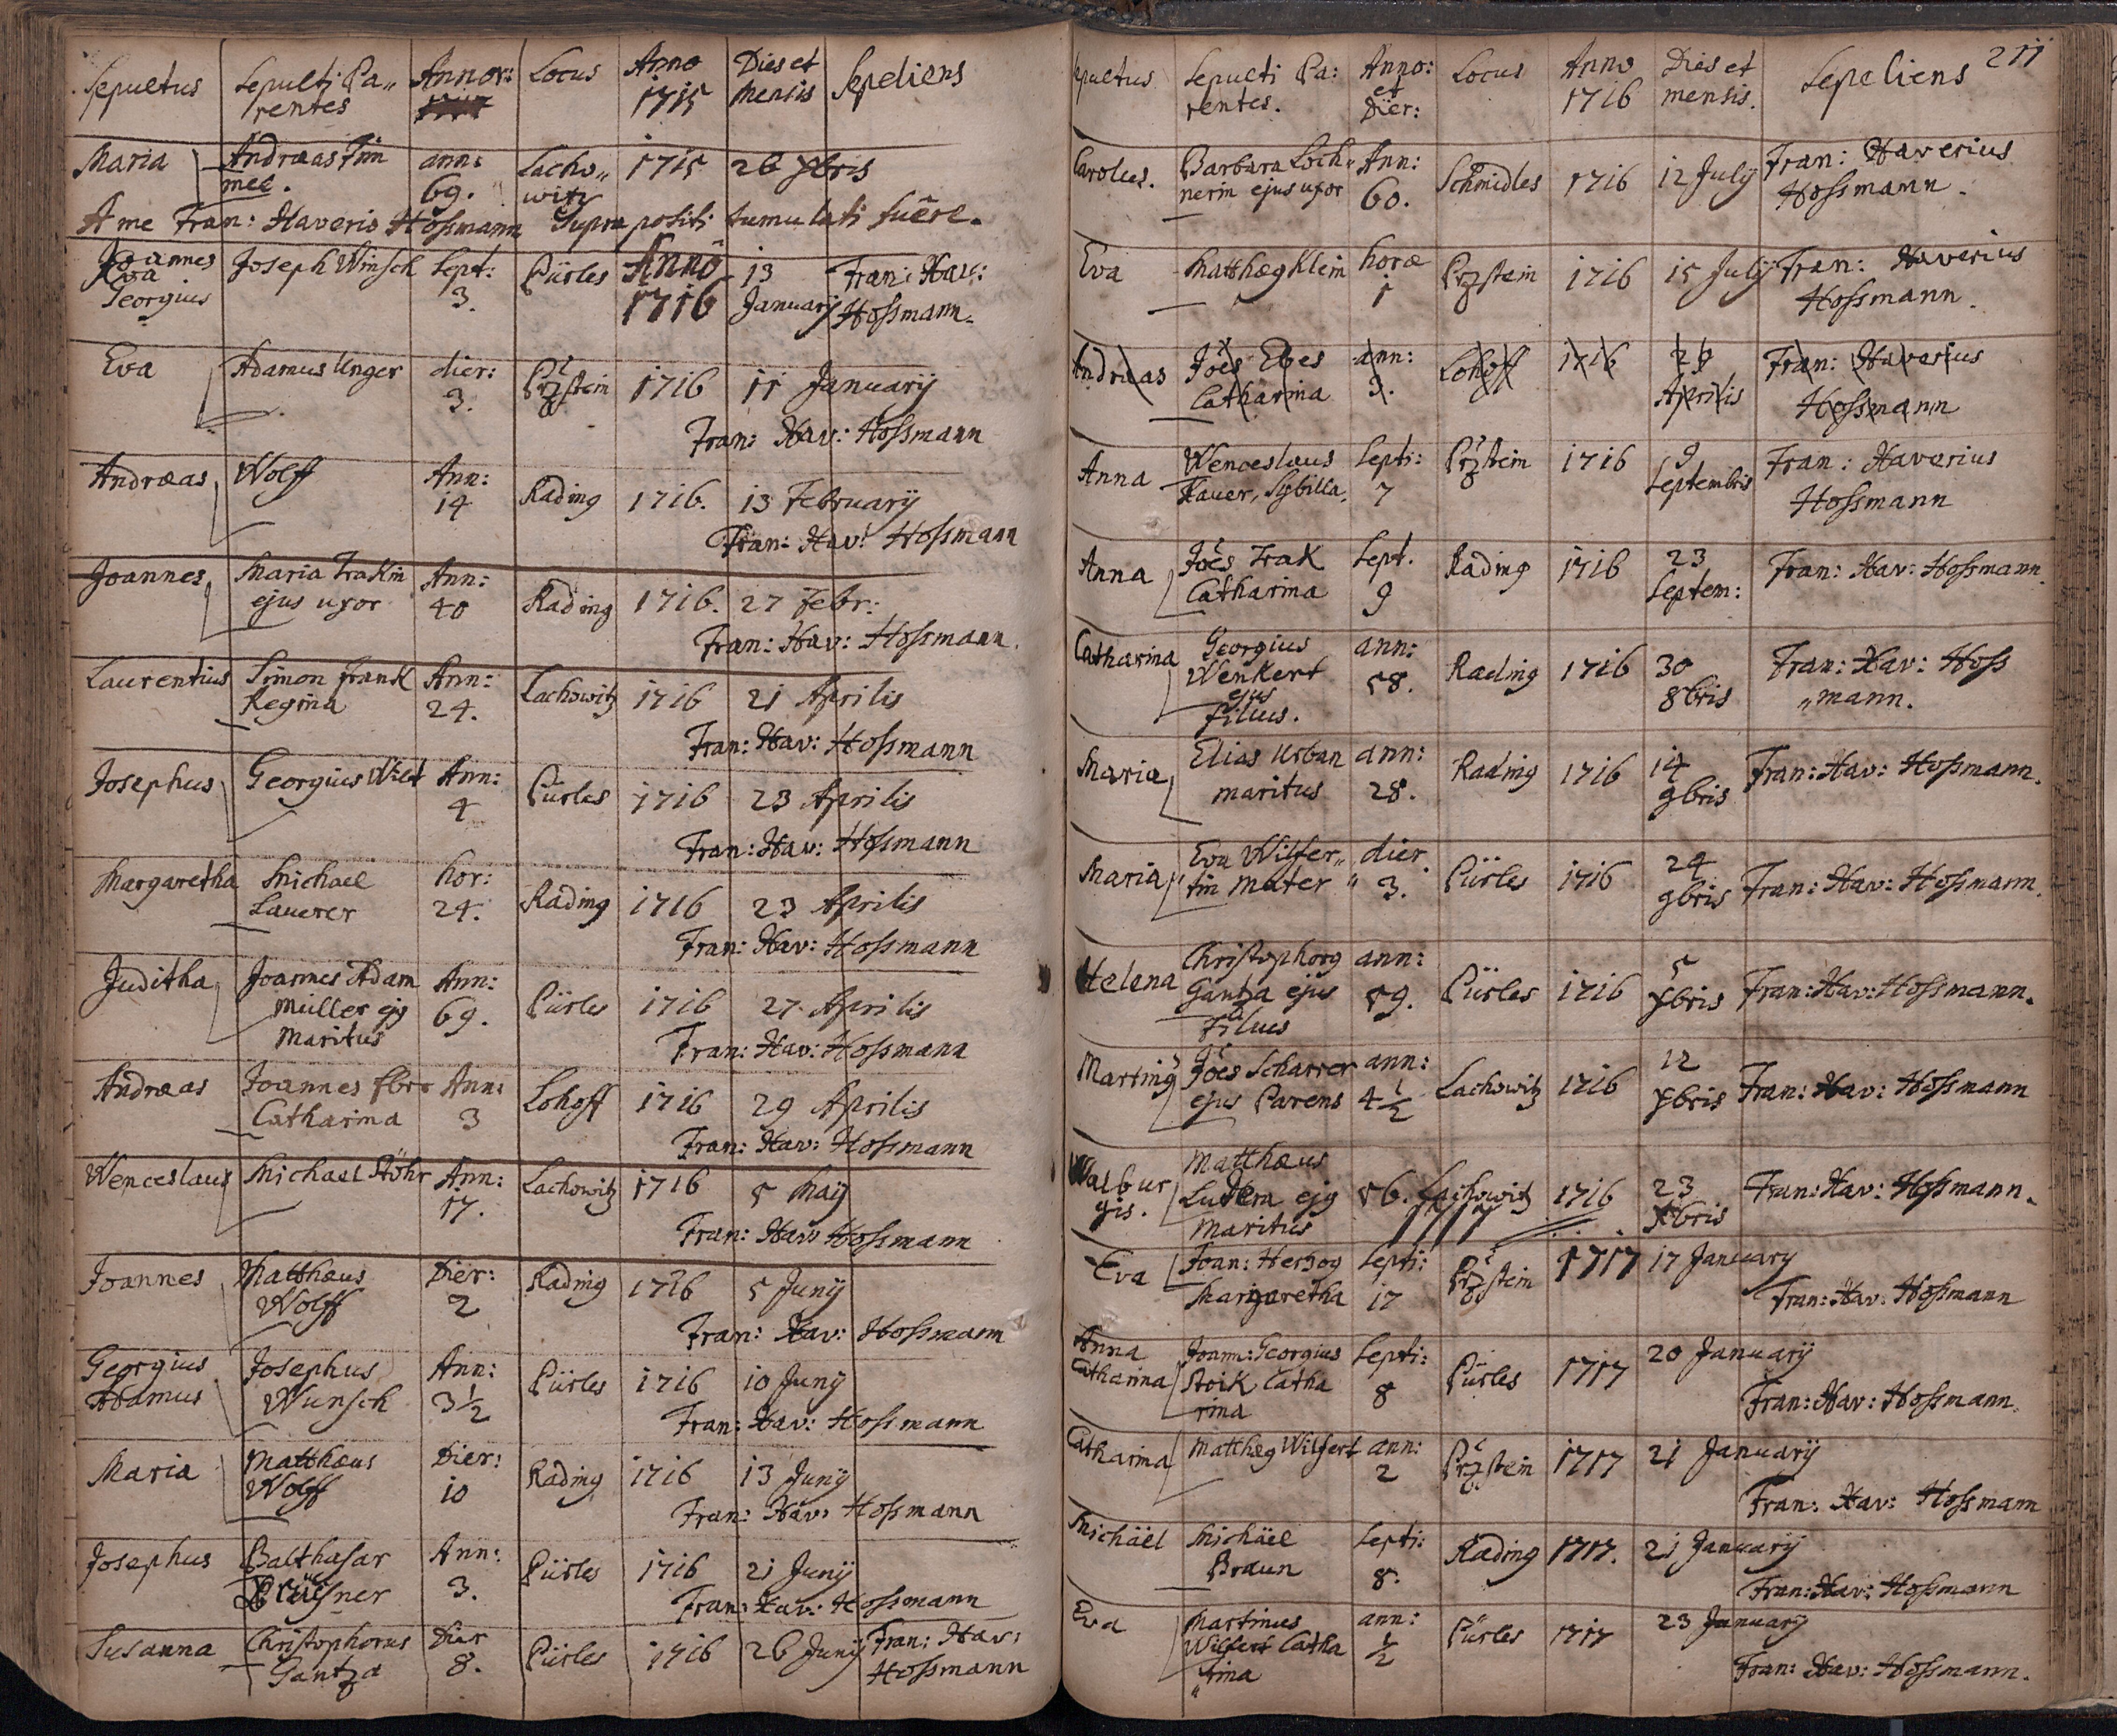 Sepultus Sepulti Pa„ Annor: Locus Anno Dies et Sepeliens
rentes 1715 Mensis
Maria Andræas Trim ann: Lacho„ 1715 26 Xbris
mel. 69. witz
A me Fran: Xaverio Hossmann Supra positi tumulati fuêre.
Joannes Joseph Winsch Sept: Pürles Anno 13 Fran: Xav:
Georgius 3. 1716 Januarij Hossmann.
Eva Adamus Unger dier: Przstein 1716 11 Januarij
3.
Fran: Xav: Hossmann
Andræas Wolff Ann: Rading 1716. 13 Februarij
14
Fran: Xav: Hossmann
Joannes Maria Trakin Ann: Rading 1716. 27 Febr:
ejus uxor 40
Fran: Xav: Hossmann.
Laurentius Simon Frank Ann: Lachowitz 1716 21 Aprilis
Regina 24.
Fran: Xav: Hossmann
Josephus Georgius Wild Ann: Pürles 1716 23 Aprilis
4
Fran: Xav: Hossmann
Margaretha Michael hor: Rading 1716 23 Aprilis
Lauerer 24.
Fran: Xav: Hossmann
Juditha Joannes Adam Ann: Pürles 1716 27 Aprilis
Müller ejg 69.
Maritus
Fran: Xav: Hossmann
Andræas Joannes Ann: Lohoff 1716 29 Aprilis
Catharina 3
Fran: Xav: Hossmann
Wenceslaus Michael Stöhr Ann: Lachowitz 1716 5 Maij
17.
Fran: Xav: Hossmann
Joannes Matthæus Dier: Rading 1716 5 Junij
Wolff 2
Fran: Xav: Hossmann
Georgius Josephus Ann: Pürles 1716 10 Junij
Adamus Wunsch 3½
Fran: Xav: Hossmann
Maria Matthæus Dier: Rading 1716 13 Junij
Wolff 10
Fran: Xav: Hossmann
Josephus Balthasar Ann: Pürles 1716 21 Junij
3.
Fran: Xav: Hossmann
Susanna Christophorus Dier Pürles 1716 26 Junij Fran: Xav:
Gantza 8. Hossmann
211
Sepultus Sepulti Pa: Anno: Locus Anno Dies et Sepeliens
rentes. et Dier: 1716 mensis.
Carolus. Barbara Loch„ Ann: Schmidles 1716 12 Julij Fran: Xaverius
nerin ejus uxor 60. Hossmann.
Eva Matthæg Klein horæ Przstein 1716 15 Julij Fran: Xaverius
1 Hossmann.
Andræas Jōes Ebes ann: Lohoff 1716 29 Fran: Xaverius
Catharina 3. Aprilis Hossmann
Anna Wenceslaus Septi: Przstein 1716 9 Fran: Xaverius
Kauer, Sybilla, 7 Septembris Hossmann
Anna Jōes Trak Sept. Rading 1716 23 Fran: Xav: Hossmann.
Catharina 9 Septem:
Catharina Georgius ann: Rading 1716 30 Fran: Xav: Hoss
Wenkert 58. 8bris „mann.
ejus
filius.
Maria Elias Urban ann: Rading 1716 14 Fran: Xav: Hossmann.
maritus 28. 9bris
Maria Eva Wilfer„ dier Pürles 1716 24 Fran: Xav: Hossmann.
tin Mater 3. 9bris
Helena Christophorg ann: Pürles 1716 5 Fran: Xav: Hossmann.
Gantza ejus 59. Xbris
Filius
Marting Jōes Scharrer ann: Lachowitz 1716 12 Fran: Xav: Hossmann
ejus Parens 4½ Xbris
Walbur Matthæus 56. Lachowitz 1716 23 Fran: Xav: Hossmann.
gis. ejg Xbris
Maritus
Eva Joan: Herzog Septi: Przstein 1717 17 January
Margaretha 17 Fran: Xav: Hossmann
Anna Joann: Georgius Septi: Pürles 1717 20 Januarij
Catharina Stoik Catha 8
rina Fran: Xav: Hossmann.
Catharina Mattheg Wilfert ann: Przstein 1717 21 Januarij
2
Fran: Xav: Hossmann
Michäel Michäel Septi: Rading 1717. 21 Januarij
Braun 8.
Fran: Xav: Hossmann
Eva Martinus ann: Pürles 1717 23 Januarij
Wilfert Catha ½
„rina Fran: Xav: Hossmann.